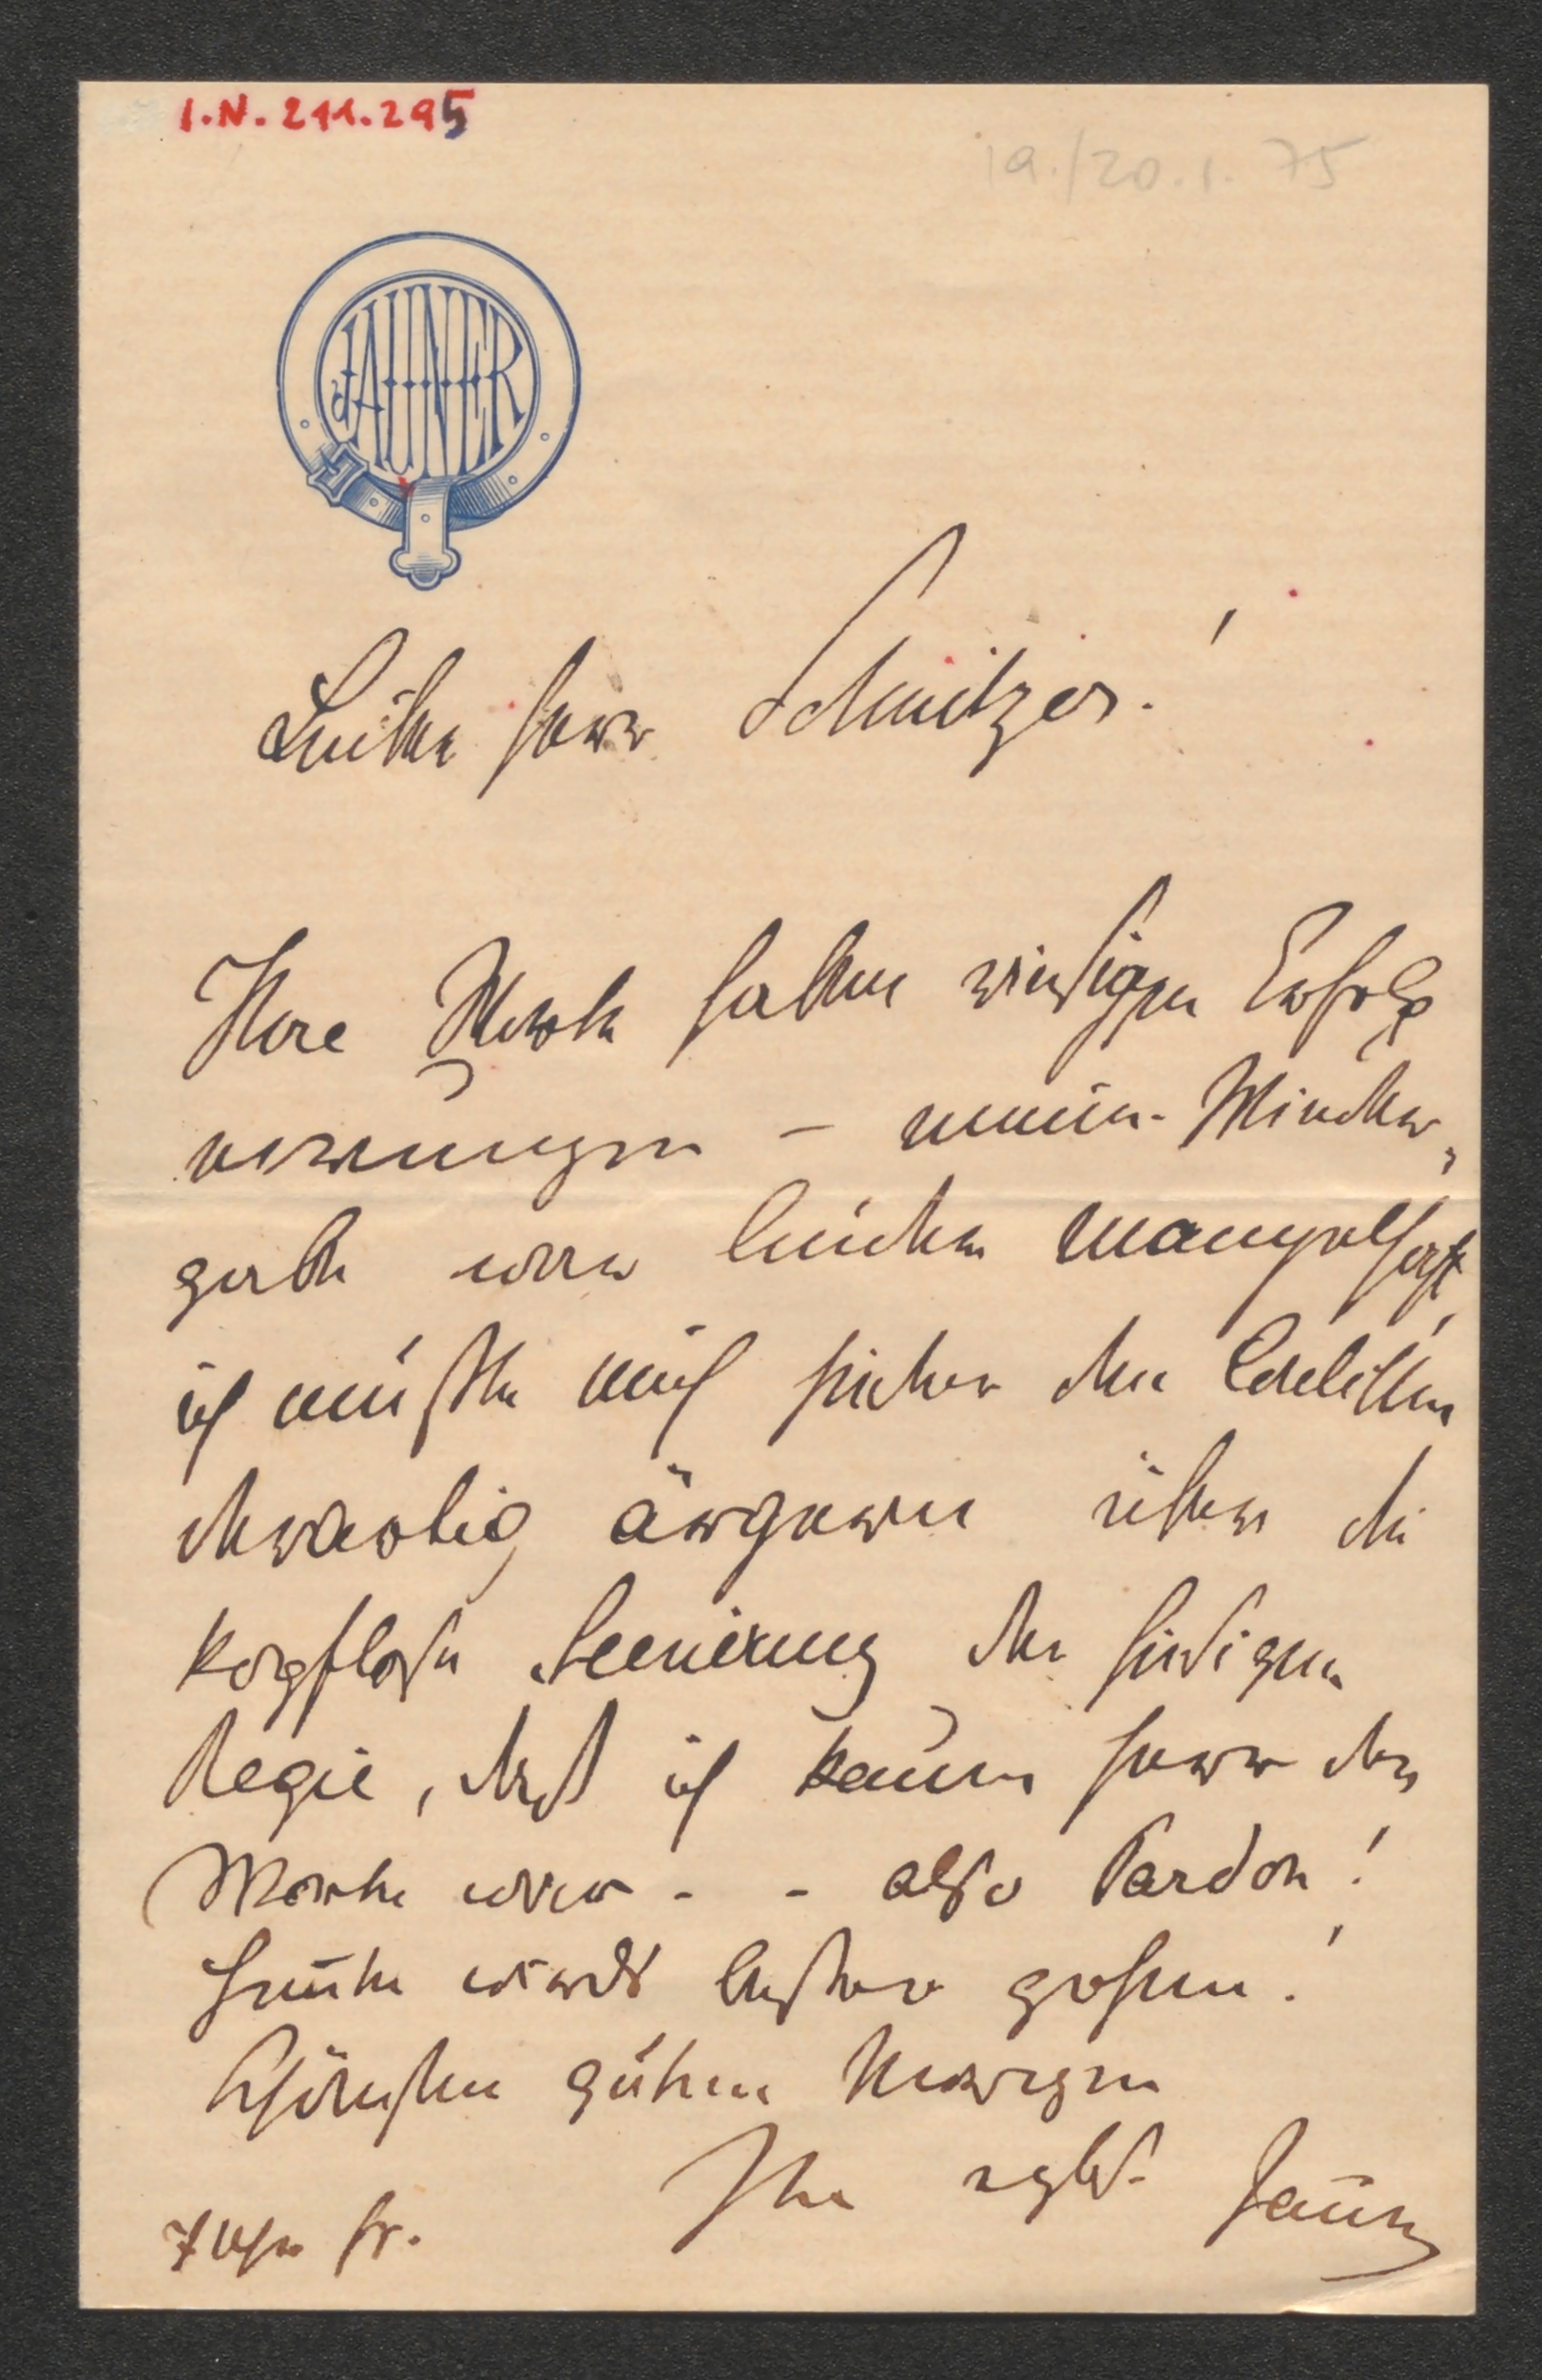 I.N. 211.295
19./20.1.75
JAUNER
Lieber Herr Schnitzer!
Ihre Worte hatten riesigen Erfolg
errungen – meine Wieder-
gabe war leider mangelhaft,
ich mußte mich hinter den Coulissen
derartig ärgern über die
kopflose Scenirung der hiesigen
Regie, daß ich kaum Herr der
Worte war - - also Pardon!
Heute wird's besser gehen!
Schönsten guten Morgen
Ihr ergbst. Jauner
7 Uhr fr.